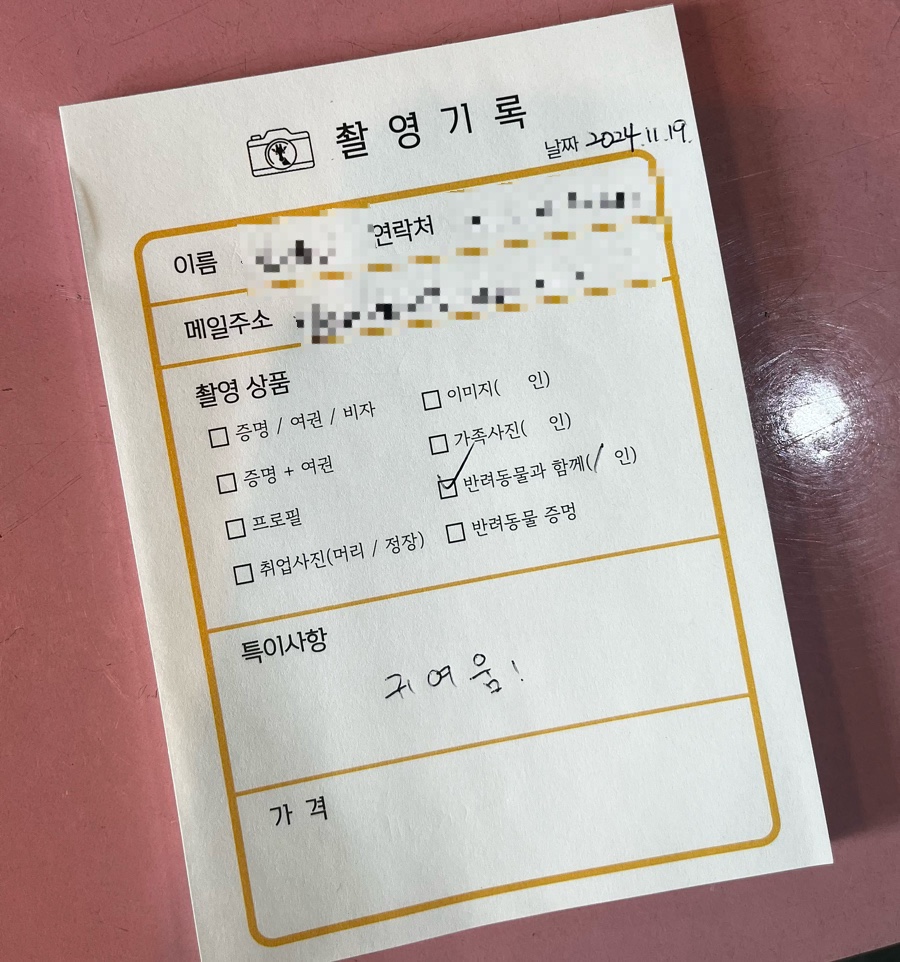 촬영기록
날짜 2024.11.19.
이름 연락처
메일주소
촬영 상품
□ 증명 / 여권 / 비자 □ 이미지( 인)
□ 증명 + 여권 □ 가족사진( 인)
□ 프로필 ☑ 반려동물과 함께(1 인)
□ 취업사진(머리 / 정장) □ 반려동물 증명
특이사항
귀여움!
가 격